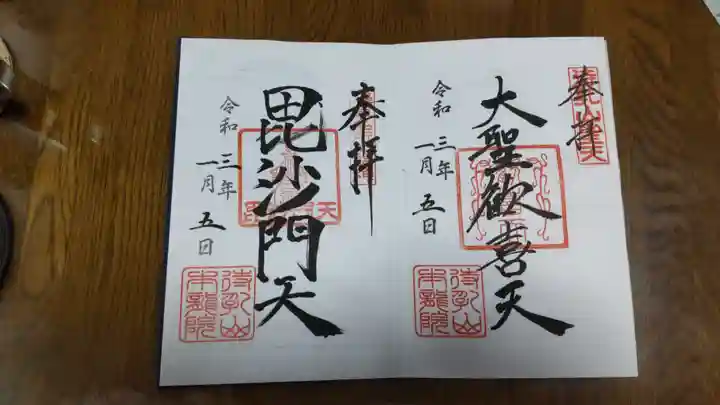 奉拝
大聖歓喜天
令和三年
一月五日
待乳山
本龍院
奉拝
毘沙門天
令和三年
一月五日
待乳山
本龍院